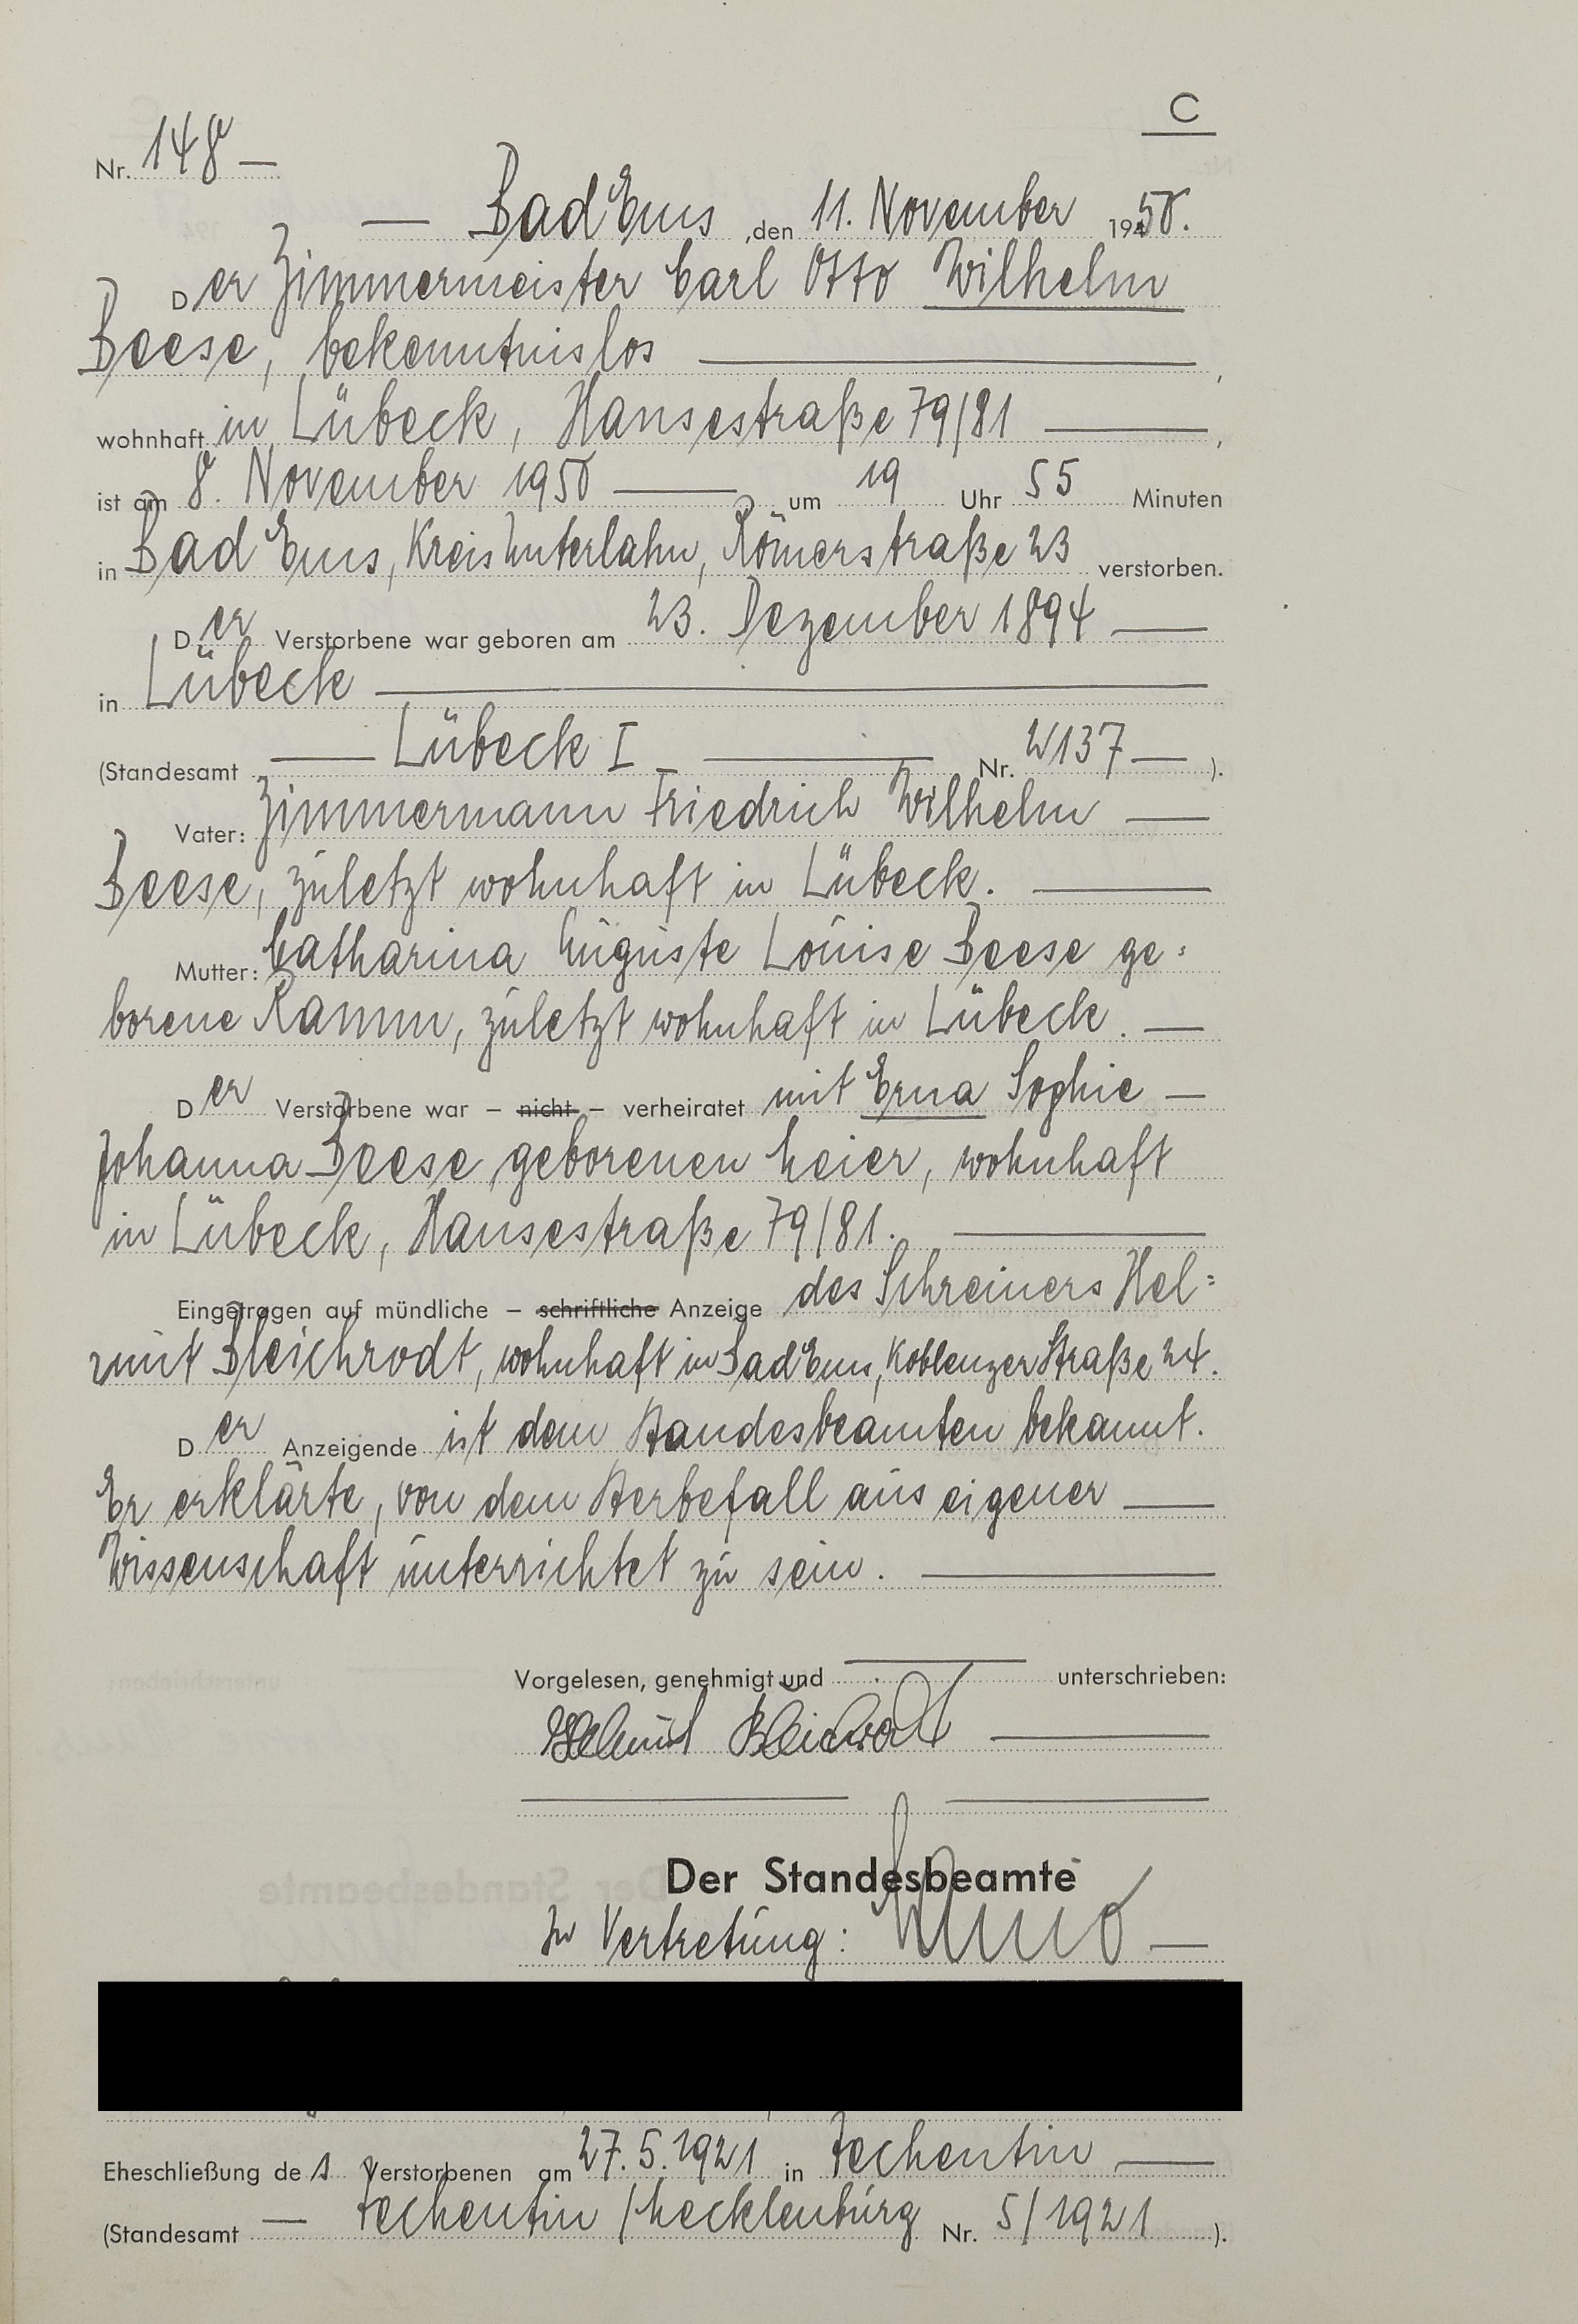 C
Nr. 148
Bad Ems, den 11. November 1950.
Der Zimmermeister Carl Otto Wilhelm
Beese, bekenntnislos,
wohnhaft in Lübeck, Hansestraße 79/81,
ist am 8. November 1950 um 19 Uhr 55 Minuten
in Bad Ems, Kreis Unterlahn, Römerstraße 23 verstorben.
Der Verstorbene war geboren am 23. Dezember 1894
in Lübeck
(Standesamt Lübeck I Nr. 2137).
Vater: Zimmermann Friedrich Wilhelm
Beese, zuletzt wohnhaft in Lübeck.
Mutter: Catharina Auguste Louise Beese ge=
borene Ramm, zuletzt wohnhaft in Lübeck.
Der Verstorbene war – nicht – verheiratet mit Erna Sophie
Johanna Beese geborenen Meier, wohnhaft
in Lübeck, Hansestraße 79/81.
Eingetragen auf mündliche – schriftliche Anzeige des Schreiners Hel=
mut Bleichrodt, wohnhaft in Bad Ems, Koblenzer Straße 24.
Der Anzeigende ist dem Standesbeamten bekannt.
Er erklärte, von dem Sterbefall aus eigener
Wissenschaft unterrichtet zu sein.
Vorgelesen, genehmigt und unterschrieben:
Helmut Bleichrodt
Der Standesbeamte
In Vertretung:
Eheschließung des Verstorbenen am 27.5.1921 in Techentin
(Standesamt Techentin/Mecklenburg Nr. 5/1921).